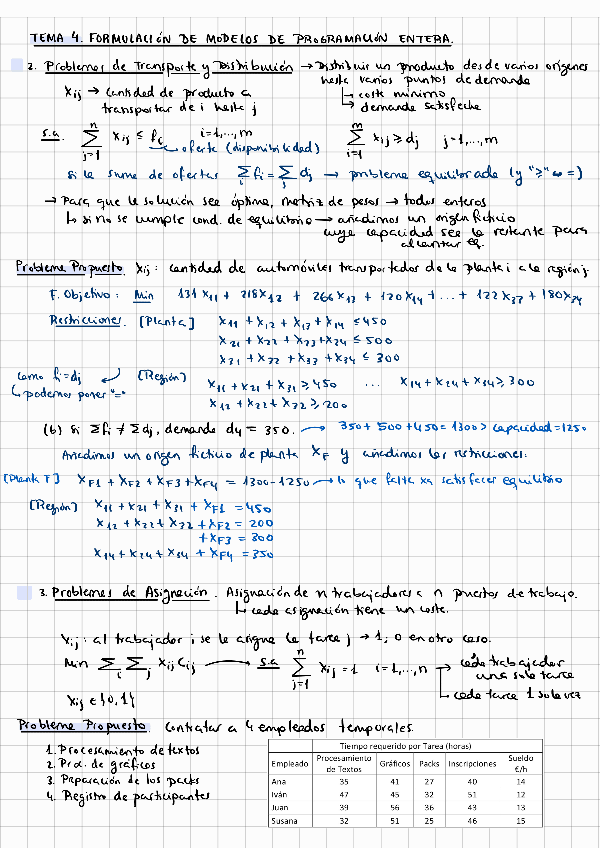 TEMA 4. FORMULACIÓN DE MODELOS DE PROGRAMACIÓN ENTERA.
2. Problemas de Transporte y Distribución → Distribuir un producto desde varios orígenes
hasta varios puntos de demanda
Xij → cantidad de producto a
transportar de i hasta j
↳ coste mínimo
↳ demanda satisfecha
s.a. Σ(j=1..n) Xij ≤ fi i=1,...,m
→ oferta (disponibilidad)
Σ(i=1..m) Xij ≥ dj j=1,...,n
si la suma de ofertas Σi fi = Σj dj → problema equilibrado (y "≥" ⇔ =)
→ Para que la solución sea óptima, matriz de pesos → todos enteros
↳ si no se cumple cond. de equilibrio → añadimos un origen ficticio
cuya capacidad sea la restante para
alcanzar eq.
Problema Propuesto. Xij: cantidad de automóviles transportados de la planta i a la región j.
F. Objetivo: Min 131 X11 + 218 X12 + 266 X13 + 120 X14 + ... + 122 X33 + 180 X34
Restricciones. [Planta] X11 + X12 + X13 + X14 ≤ 450
X21 + X22 + X23 + X24 ≤ 500
X31 + X32 + X33 + X34 ≤ 300
como fi = dj
↳ podemos poner "="
[Región] X11 + X21 + X31 ≥ 450 ... X14 + X24 + X34 ≥ 300
X12 + X22 + X32 ≥ 200
(b) si Σfi ≠ Σdj, demanda d4 = 350. → 350 + 500 + 450 = 1300 > capacidad = 1250
Añadimos un origen ficticio de planta XF y añadimos las restricciones:
[Planta F] XF1 + XF2 + XF3 + XF4 = 1300 - 1250 → lo que falta xa satisfacer equilibrio
[Región] X11 + X21 + X31 + XF1 = 450
X12 + X22 + X32 + XF2 = 200
+ XF3 = 300
X14 + X24 + X34 + XF4 = 350
3. Problemas de Asignación. Asignación de n trabajadores a n puestos de trabajo.
↳ cada asignación tiene un coste.
Xij: al trabajador i se le asigna la tarea j → 1; 0 en otro caso.
Min Σi Σj Xij Cij → s.a Σ(j=1..n) Xij = 1 i=1,...,n → cada trabajador
una sola tarea
↳ cada tarea 1 sola vez
Xij ∈ {0,1}
Problema Propuesto. Contratar a 4 empleados temporales.
1. Procesamiento de textos
2. Prod. de gráficos
3. Preparación de los packs
4. Registro de participantes
Tiempo requerido por Tarea (horas)
Empleado Procesamiento de Textos Gráficos Packs Inscripciones Sueldo €/h
Ana 35 41 27 40 14
Iván 47 45 32 51 12
Juan 39 56 36 43 13
Susana 32 51 25 46 15